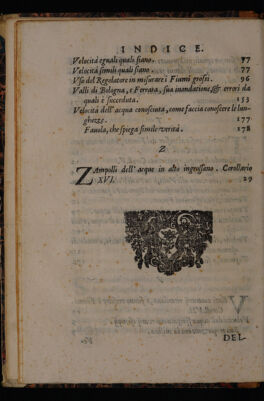 INDICE.
Velocità eguali quali siano. 77
Velocità simili quali siano. 77
Uso del Regolatore in misurare i Fiumi grossi. 96
Valli di Bologna, e Ferrara, sua inondatione, & errori da
quali è succeduta. 153
Velocità dell' acqua conosciuta, come faccia conoscere le lun-
ghezze. 177
Favola, che spiega simile verità. 178
Z
ZAmpilli dell' acque in alto ingrossano. Corollario
XVI. 29
DEL-